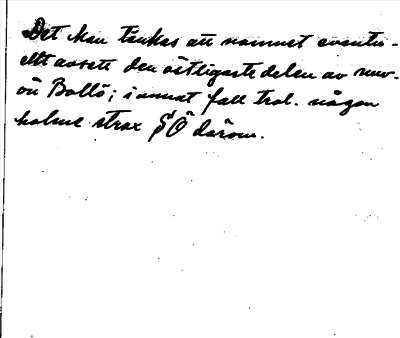 Det kan tänkas att namnet eventu-
ellt avsett den östligaste delen av nuv.
ön Bollö; i annat fall trol. någon
holme strax SÖ därom.